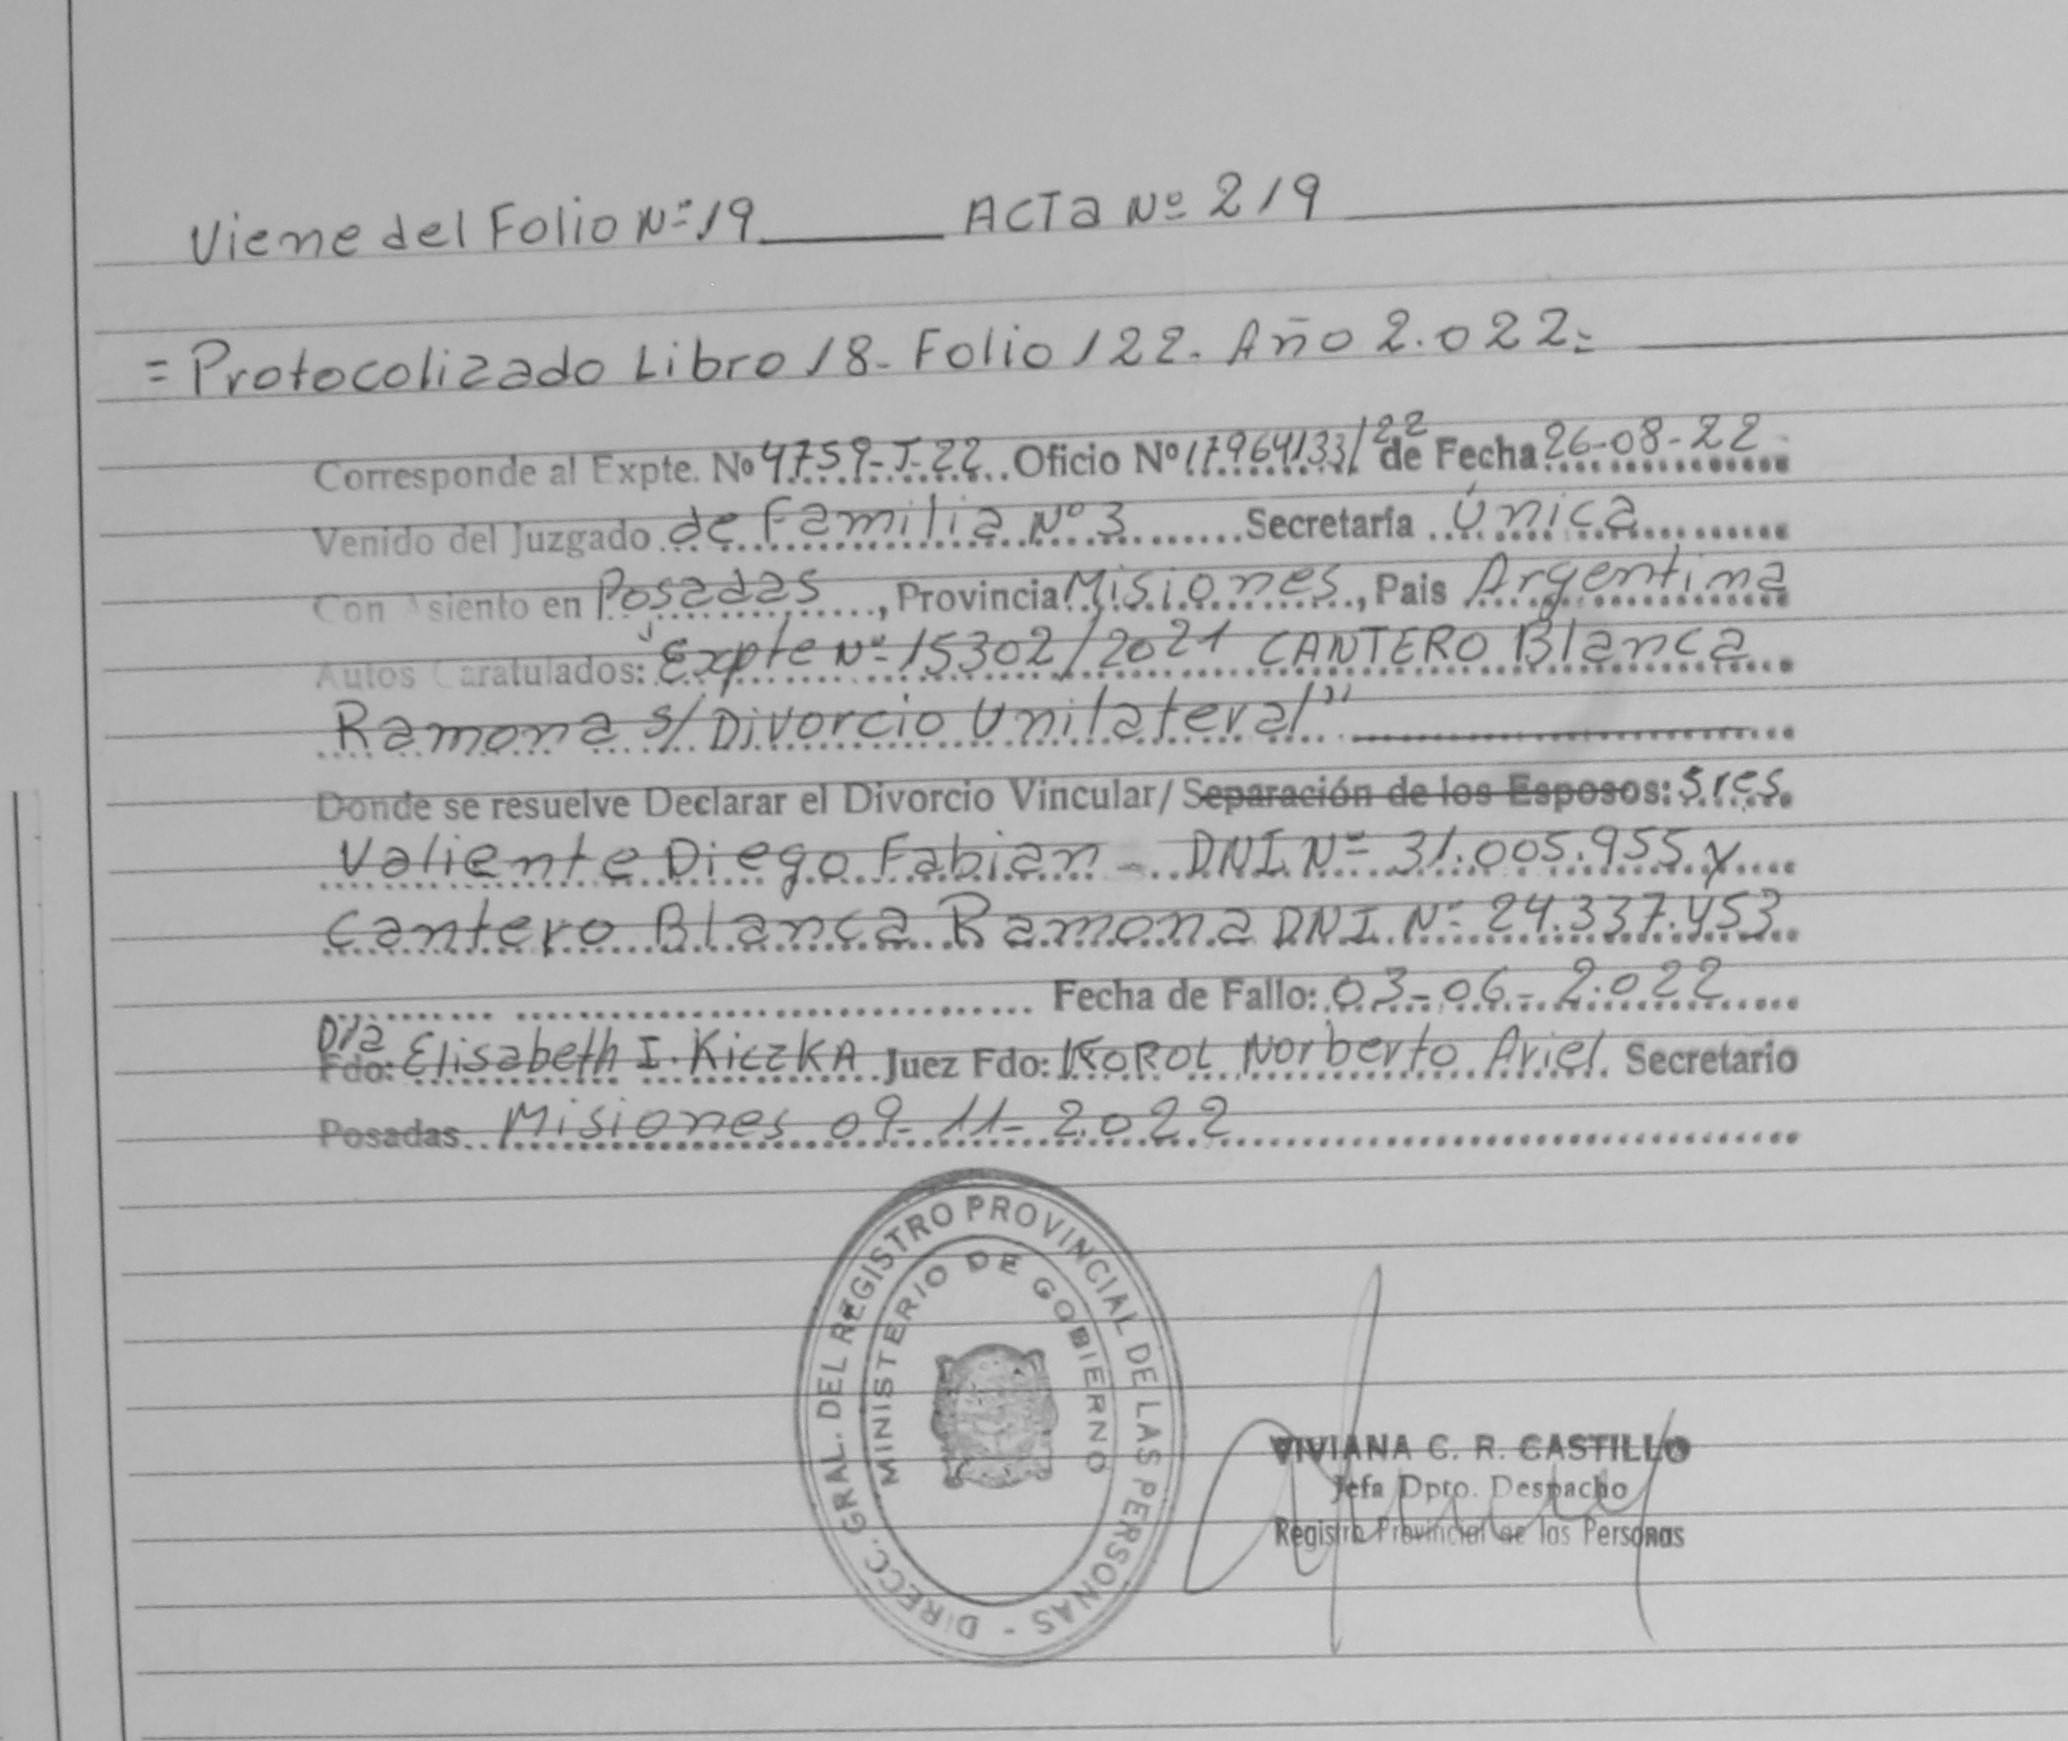 Viene del Folio Nº 19 ACTa Nº 219
= Protocolizado Libro 18- Folio 122. Año 2.022=
Corresponde al Expte. Nº 4759-J-22 Oficio Nº 17964133/22 de Fecha 26-08-22
Venido del Juzgado de Familia Nº 3 Secretaría Única
Con Asiento en Posadas, Provincia Misiones, Pais Argentina
Autos Caratulados: "Expte Nº 15302/2021 CANTERO Blanca
Ramona s/ Divorcio Unilateral"
Donde se resuelve Declarar el Divorcio Vincular/ Separación de los Esposos: Sres
Valiente Diego Fabian - DNI Nº 31.005.955 y
Cantero Blanca Ramona DNI Nº 24.337.453
Fecha de Fallo: 03-06-2.022
Dra
Fdo: Elisabeth I. KiczKA Juez Fdo: KOROL Norberto Ariel. Secretario
Posadas Misiones 09-11-2.022
DIRECC. GRAL. DEL REGISTRO PROVINCIAL DE LAS PERSONAS -
MINISTERIO DE GOBIERNO
VIVIANA C. R. CASTILLO
Jefa Dpto. Despacho
Registro Provincial de las Personas